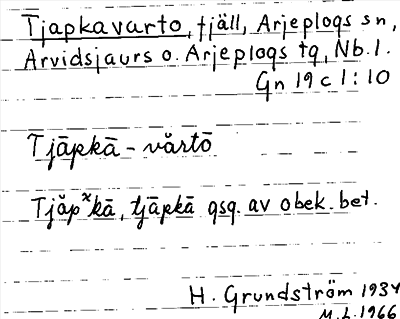 Tjapkavarto, fjäll, Arjeplogs sn,
Arvidsjaurs o. Arjeplogs tg, Nb.l.
Gn 19 c 1:10
Tjāpkā - vårtō
Tjåpˣkā, tjāpkā gsg. av obek. bet.
H. Grundström 1934
M.L. 1966